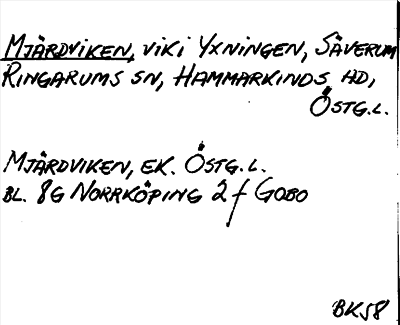 Mjärdviken, vik i Yxningen, Säverum
Ringarums sn, Hammarkinds hd,
Östg.l.
Mjärdviken, ek. Östg.l.
bl. 8G Norrköping 2 f Gobo
BK58